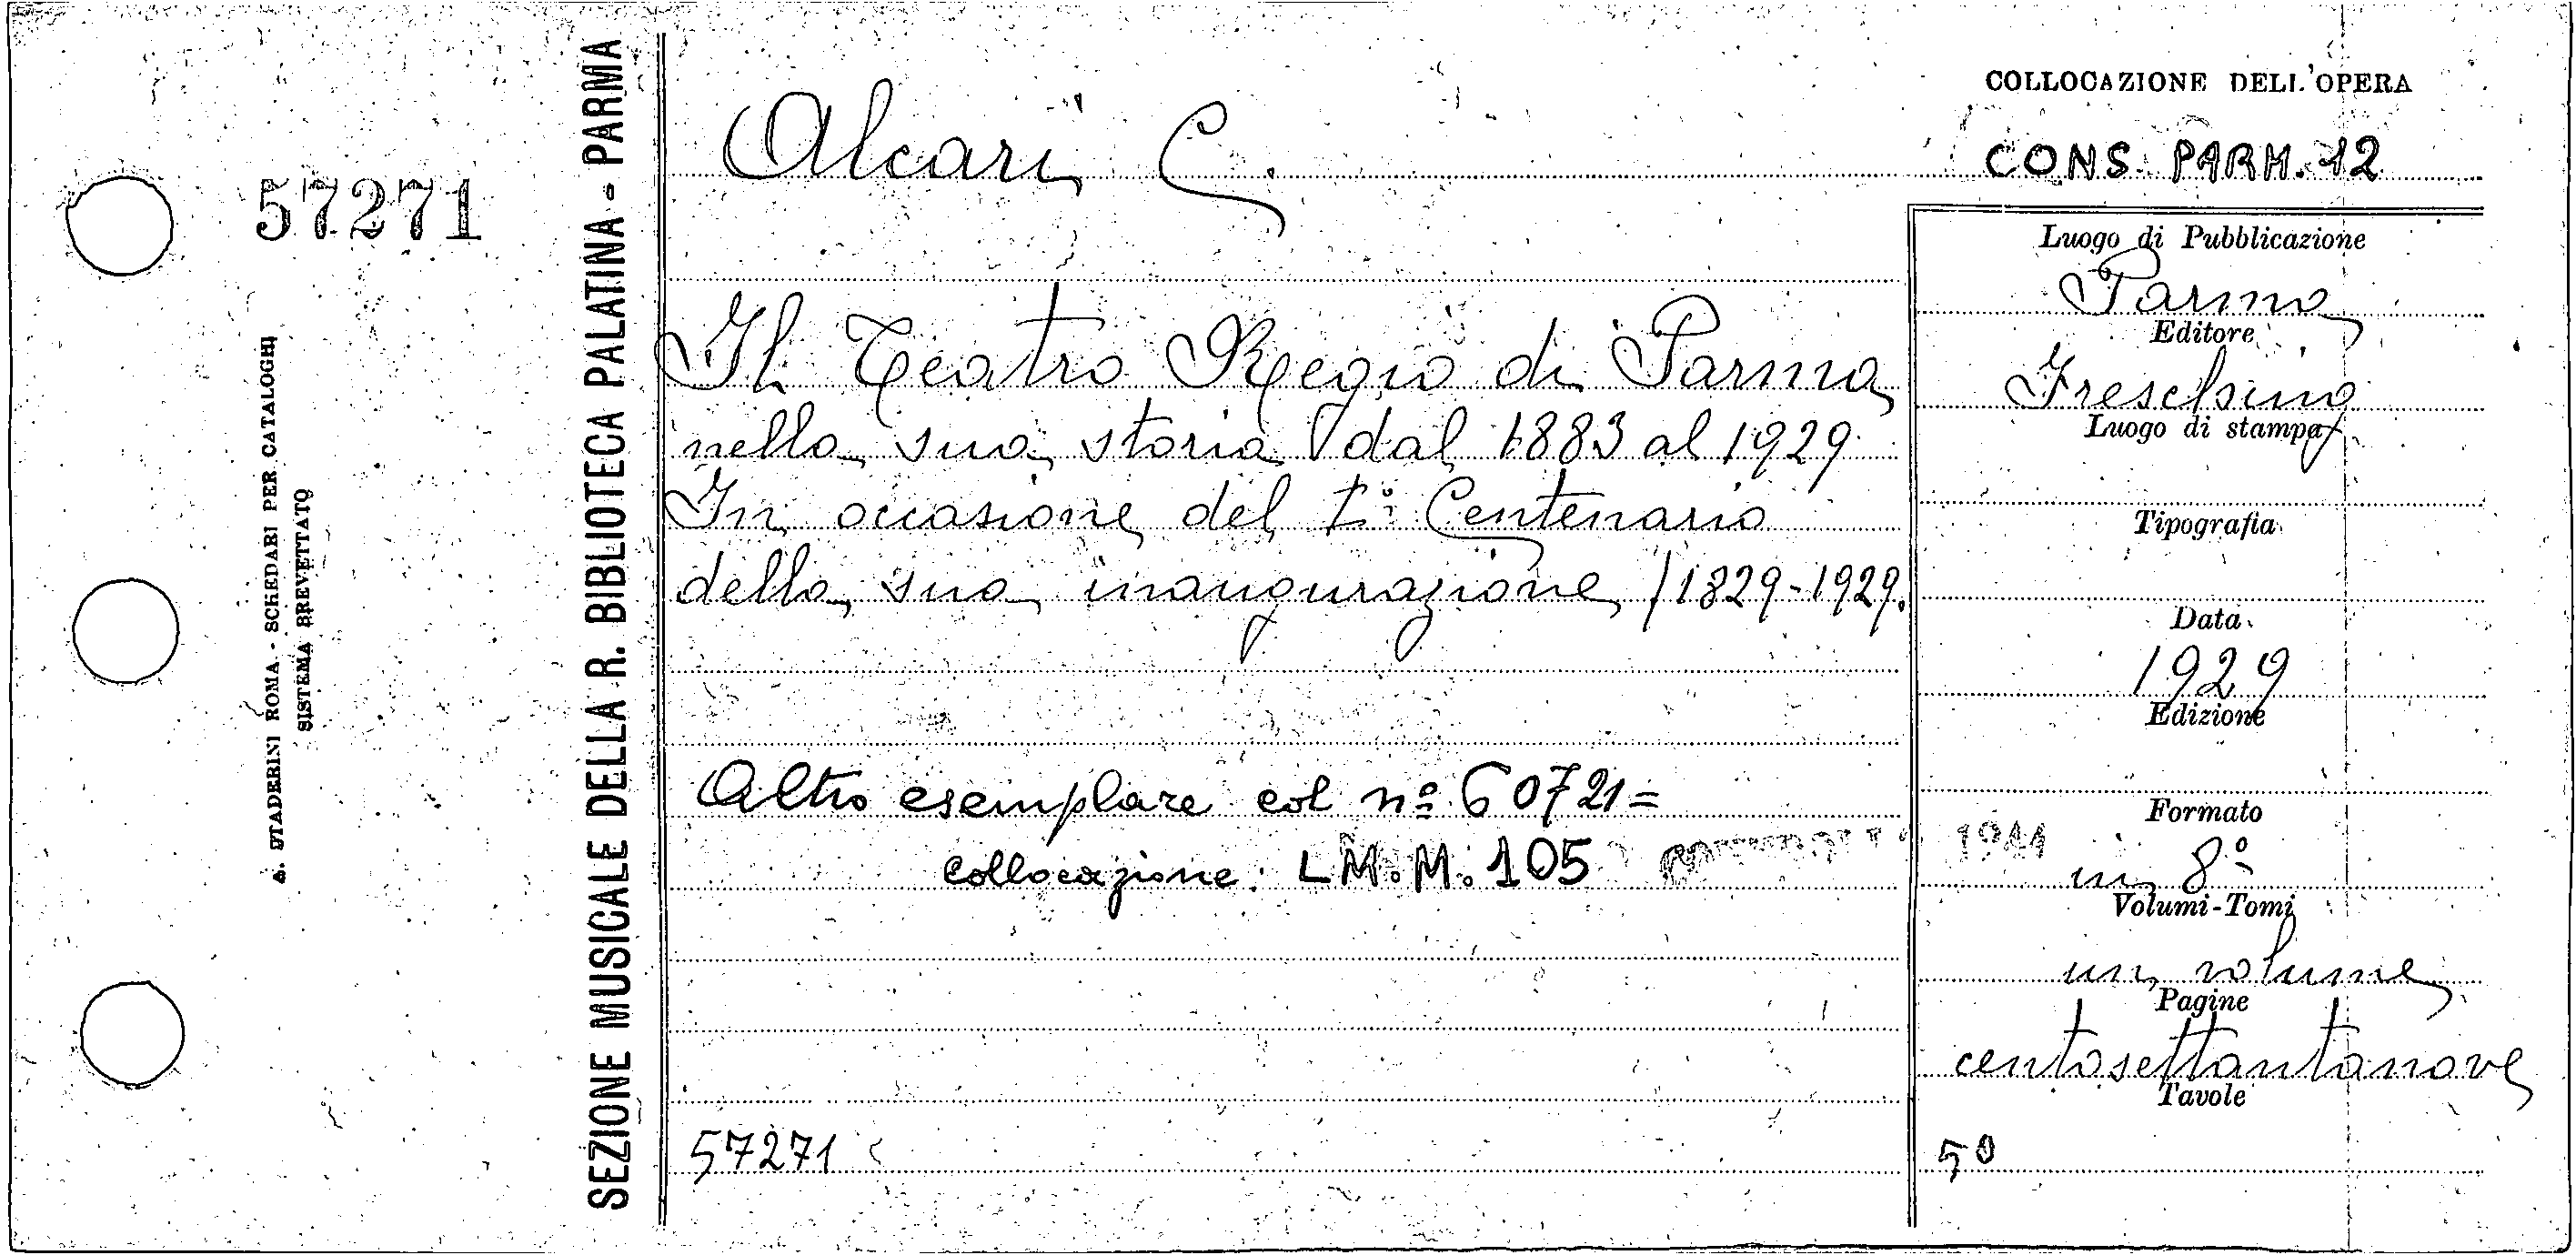 57271
S. STADERINI ROMA - SCHEDARI PER CATALOGHI
SISTEMA BREVETTATO
SEZIONE MUSICALE DELLA R. BIBLIOTECA PALATINA - PARMA
Alcari C.
Il Teatro Regio di Parma
nella sua storia dal 1883 al 1929
In occasione del 1º Centenario
della sua inaugurazione /1829-1929.
Altro esemplare col nº 60721=
Collocazione: L M. M. 105
1941
57271
COLLOCAZIONE DELL'OPERA
CONS. PARM. 12
Luogo di Pubblicazione
Parma
Editore
Freschino
Luogo di stampa
Tipografia
Data
1929
Edizione
Formato
in 8º
Volumi-Tomi
un volume
Pagine
centosettantanove
Tavole
50